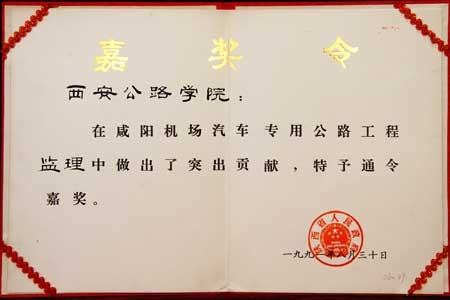 嘉奖令
西安公路学院：
在咸阳机场汽车专用公路工程
监理中做出了突出贡献，特予通令
嘉奖。
陕西省人民政府
一九九一年八月三十日